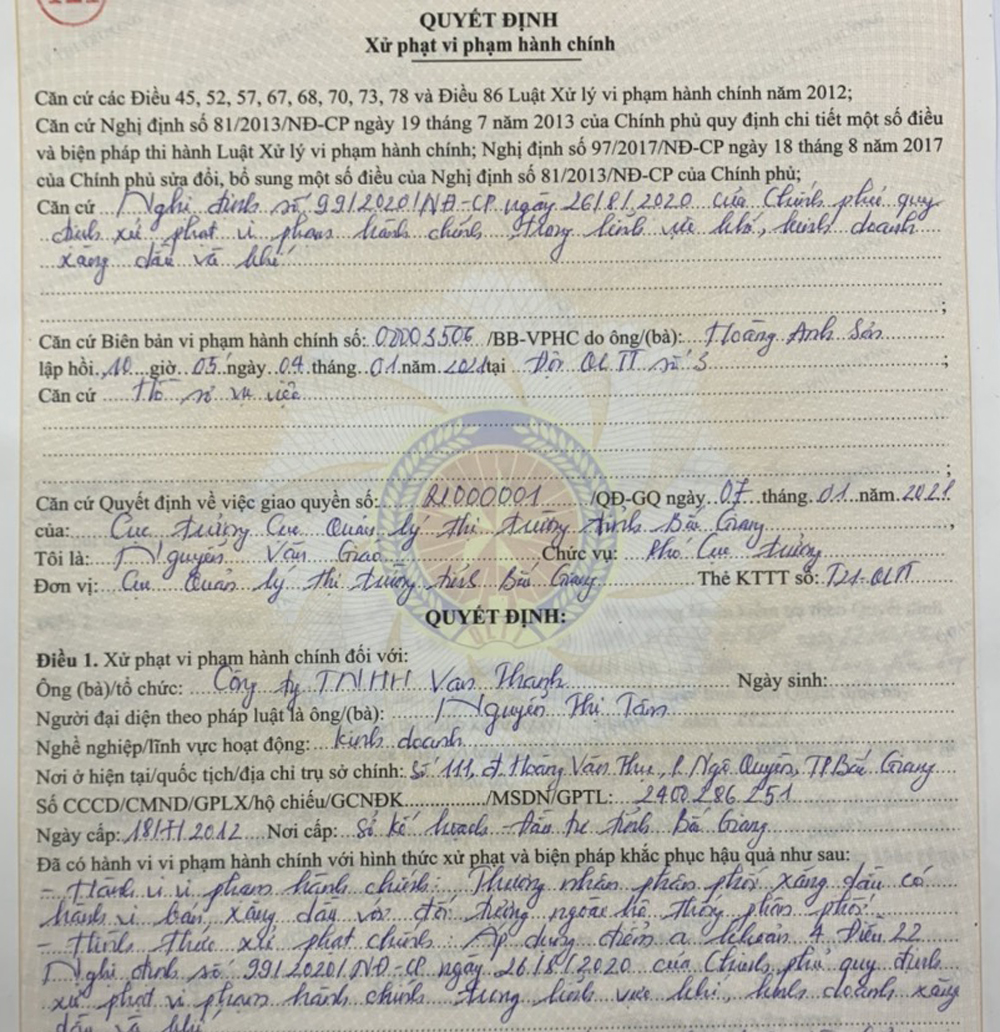 QUYẾT ĐỊNH
Xử phạt vi phạm hành chính
Căn cứ các Điều 45, 52, 57, 67, 68, 70, 73, 78 và Điều 86 Luật Xử lý vi phạm hành chính năm 2012;
Căn cứ Nghị định số 81/2013/NĐ-CP ngày 19 tháng 7 năm 2013 của Chính phủ quy định chi tiết một số điều
và biện pháp thi hành Luật Xử lý vi phạm hành chính; Nghị định số 97/2017/NĐ-CP ngày 18 tháng 8 năm 2017
của Chính phủ sửa đổi, bổ sung một số điều của Nghị định số 81/2013/NĐ-CP của Chính phủ;
Căn cứ Nghị định số 99/2020/NĐ-CP ngày 26/8/2020 của Chính phủ quy
định xử phạt vi phạm hành chính trong lĩnh vực khí, kinh doanh
xăng dầu và khí
;
Căn cứ Biên bản vi phạm hành chính số: 00003506 /BB-VPHC do ông/(bà): Hoàng Anh
lập hồi 10 giờ 05 ngày 04 tháng 01 năm 2021 tại Đội QLTT số 3 ;
Căn cứ Hồ sơ vụ việc
;
Căn cứ Quyết định về việc giao quyền số: /QĐ-GQ ngày 07 tháng 01 năm 2021
của: Cục trưởng Cục Quản lý thị trường tỉnh Bắc Giang ,
Tôi là: Nguyễn Văn Chức vụ: Phó Cục trưởng
Đơn vị: Cục Quản lý thị trường tỉnh Bắc Giang Thẻ KTTT số: T21-QLTT
QUYẾT ĐỊNH:
Điều 1. Xử phạt vi phạm hành chính đối với:
Ông (bà)/tổ chức: Công ty TNHH Vân Thanh Ngày sinh:
Người đại diện theo pháp luật là ông/(bà): Nguyễn Thị Tám
Nghề nghiệp/lĩnh vực hoạt động: Kinh doanh
Nơi ở hiện tại/quốc tịch/địa chỉ trụ sở chính: Số 111, đ. Hoàng Văn Thụ, P. Ngô Quyền, TP Bắc Giang
Số CCCD/CMND/GPLX/hộ chiếu/GCNĐK /MSDN/GPTL: 2400286251
Ngày cấp: 2012 Nơi cấp: Sở kế hoạch - Đầu tư tỉnh Bắc Giang
Đã có hành vi vi phạm hành chính với hình thức xử phạt và biện pháp khắc phục hậu quả như sau:
- Hành vi vi phạm hành chính: Thương nhân phân phối xăng dầu có
hành vi bán xăng dầu với đối tượng ngoài hệ thống phân phối.
- Hình thức xử phạt chính: Áp dụng điểm a khoản 4 Điều 22
Nghị định số 99/2020/NĐ-CP ngày 26/8/2020 của Chính phủ quy định
xử phạt vi phạm hành chính trong lĩnh vực khí, kinh doanh xăng
dầu và khí